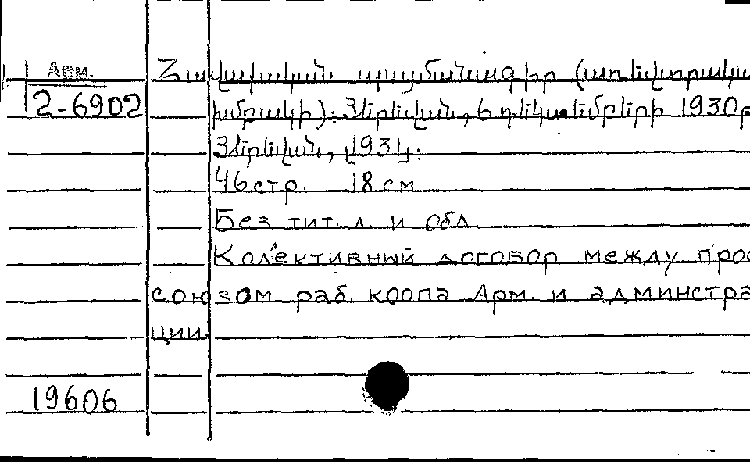 Арм.
2-6902
Հավաքական պայմանագիր (առևտրական
խմբակի): Յերևան, 6 դեկտեմբերի 1930թ
Յերևան, 1931.
46 стр. 18 см
Без тит. л. и обл.
Колективный договор между проф
союзом раб. коопа Арм. и админстра
ции.
19606